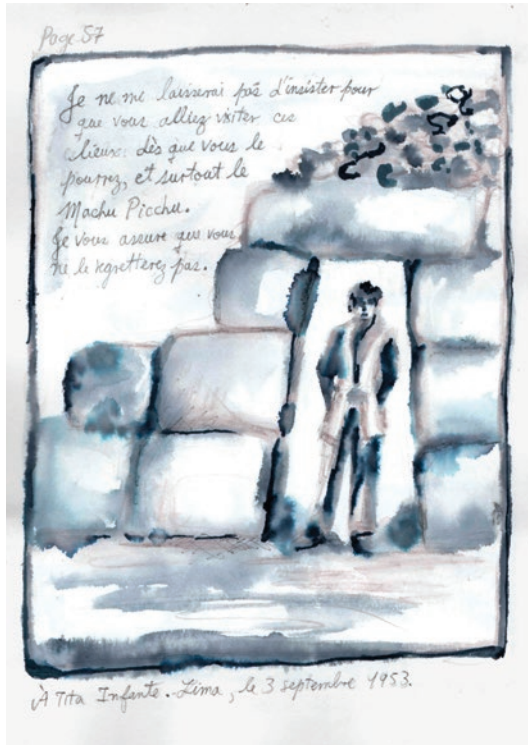 Page 57
Je ne me laisserai pas d'insister pour
que vous alliez visiter ces
lieux dès que vous le
pourrez, et surtout le
Machu Picchu.
Je vous assure que vous
ne le regretterez pas.
À Tita Infante.-Lima, le 3 septembre 1953.